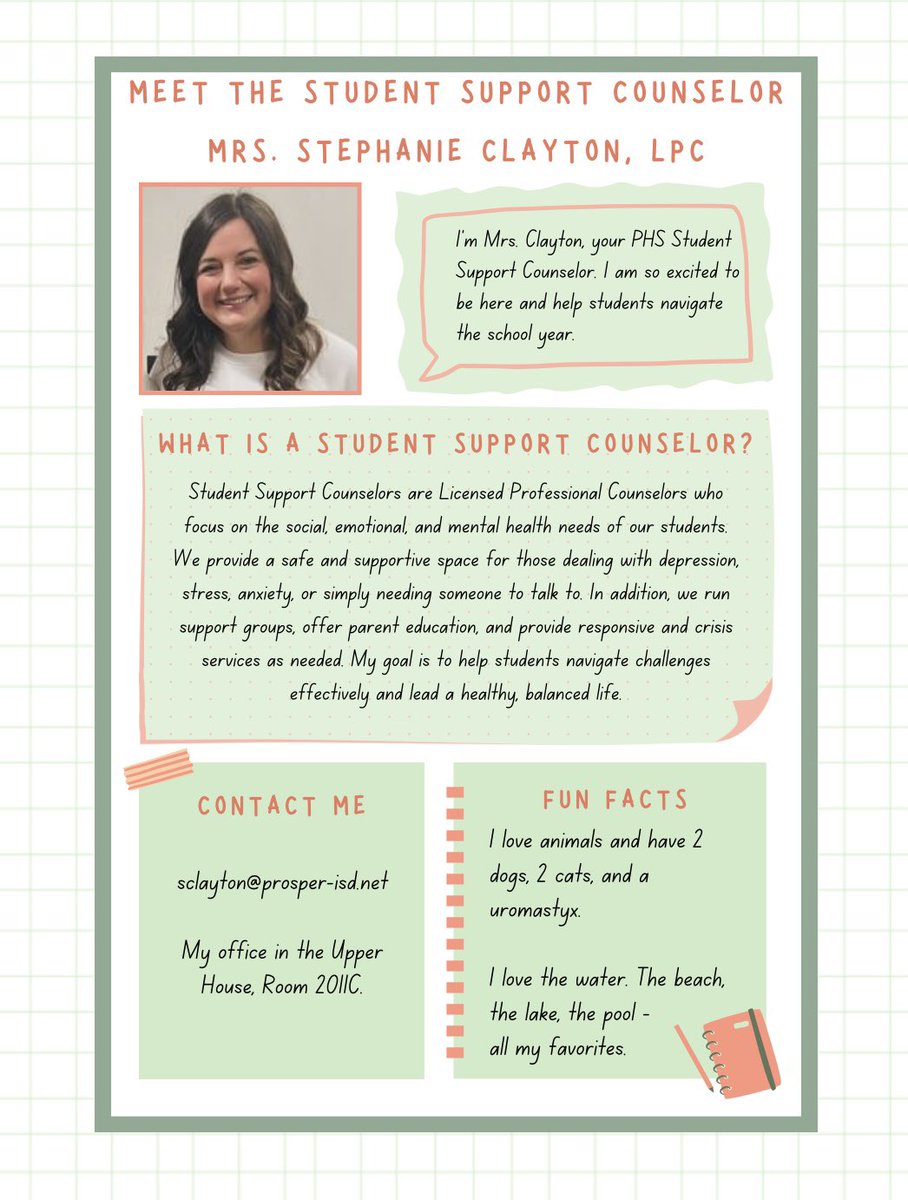 MEET THE STUDENT SUPPORT COUNSELOR
MRS. STEPHANIE CLAYTON, LPC
I'm Mrs. Clayton, your PHS Student
Support Counselor. I am so excited to
be here and help students navigate
the school year.
WHAT IS A STUDENT SUPPORT COUNSELOR?
Student Support Counselors are Licensed Professional Counselors who
focus on the social, emotional, and mental health needs of our students.
We provide a safe and supportive space for those dealing with depression,
stress, anxiety, or simply needing someone to talk to. In addition, we run
support groups, offer parent education, and provide responsive and crisis
services as needed. My goal is to help students navigate challenges
effectively and lead a healthy, balanced life.
CONTACT ME
sclayton@prosper-isd.net
My office in the Upper
House, Room 2011C.
FUN FACTS
I love animals and have 2
dogs, 2 cats, and a
uromastyx.
I love the water. The beach,
the lake, the pool -
all my favorites.